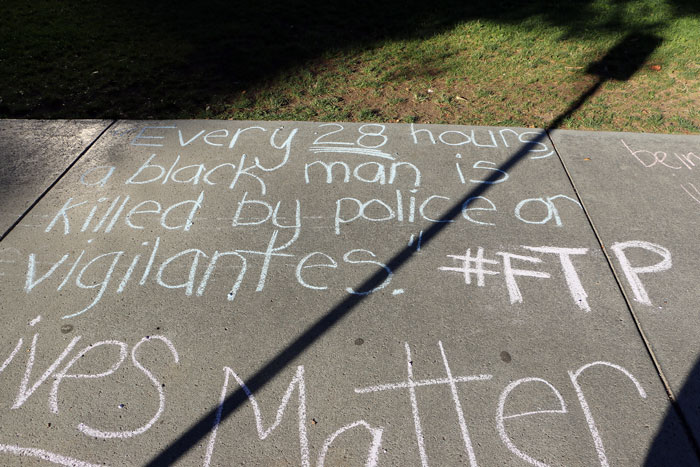 Every 28 hours
a black man is
killed by police or
vigilantes." #FTP
ives Matter